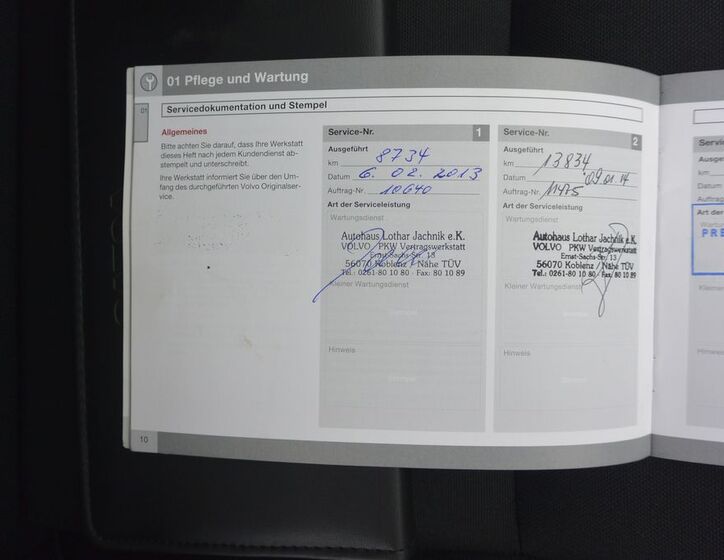 01 Pflege und Wartung
01
Servicedokumentation und Stempel
Allgemeines
Bitte achten Sie darauf, dass Ihre Werkstatt
dieses Heft nach jedem Kundendienst ab-
stempelt und unterschreibt.
Ihre Werkstatt informiert Sie über den Um-
fang des durchgeführten Volvo Originalser-
vice.
Service-Nr. 1
Ausgeführt
km 8734
Datum 6. 02. 2013
Auftrag-Nr. 10640
Art der Serviceleistung
Wartungsdienst
Autohaus Lothar Jachnik e.K.
VOLVO PKW Vertragswerkstatt
Ernst-Sachs-Str. 13
56070 Koblenz / Nähe TÜV
Tel.: 0261-80 10 80 · Fax: 80 10 89
Kleiner Wartungsdienst
Hinweis
Service-Nr. 2
Ausgeführt
km 13834
Datum 09.01.14
Auftrag-Nr. 11475
Art der Serviceleistung
Wartungsdienst
Autohaus Lothar Jachnik e.K.
VOLVO PKW Vertragswerkstatt
Ernst-Sachs-Str. 13
56070 Koblenz / Nähe TÜV
Tel.: 0261-80 10 80 · Fax: 80 10 89
Kleiner Wartungsdienst
Hinweis
10